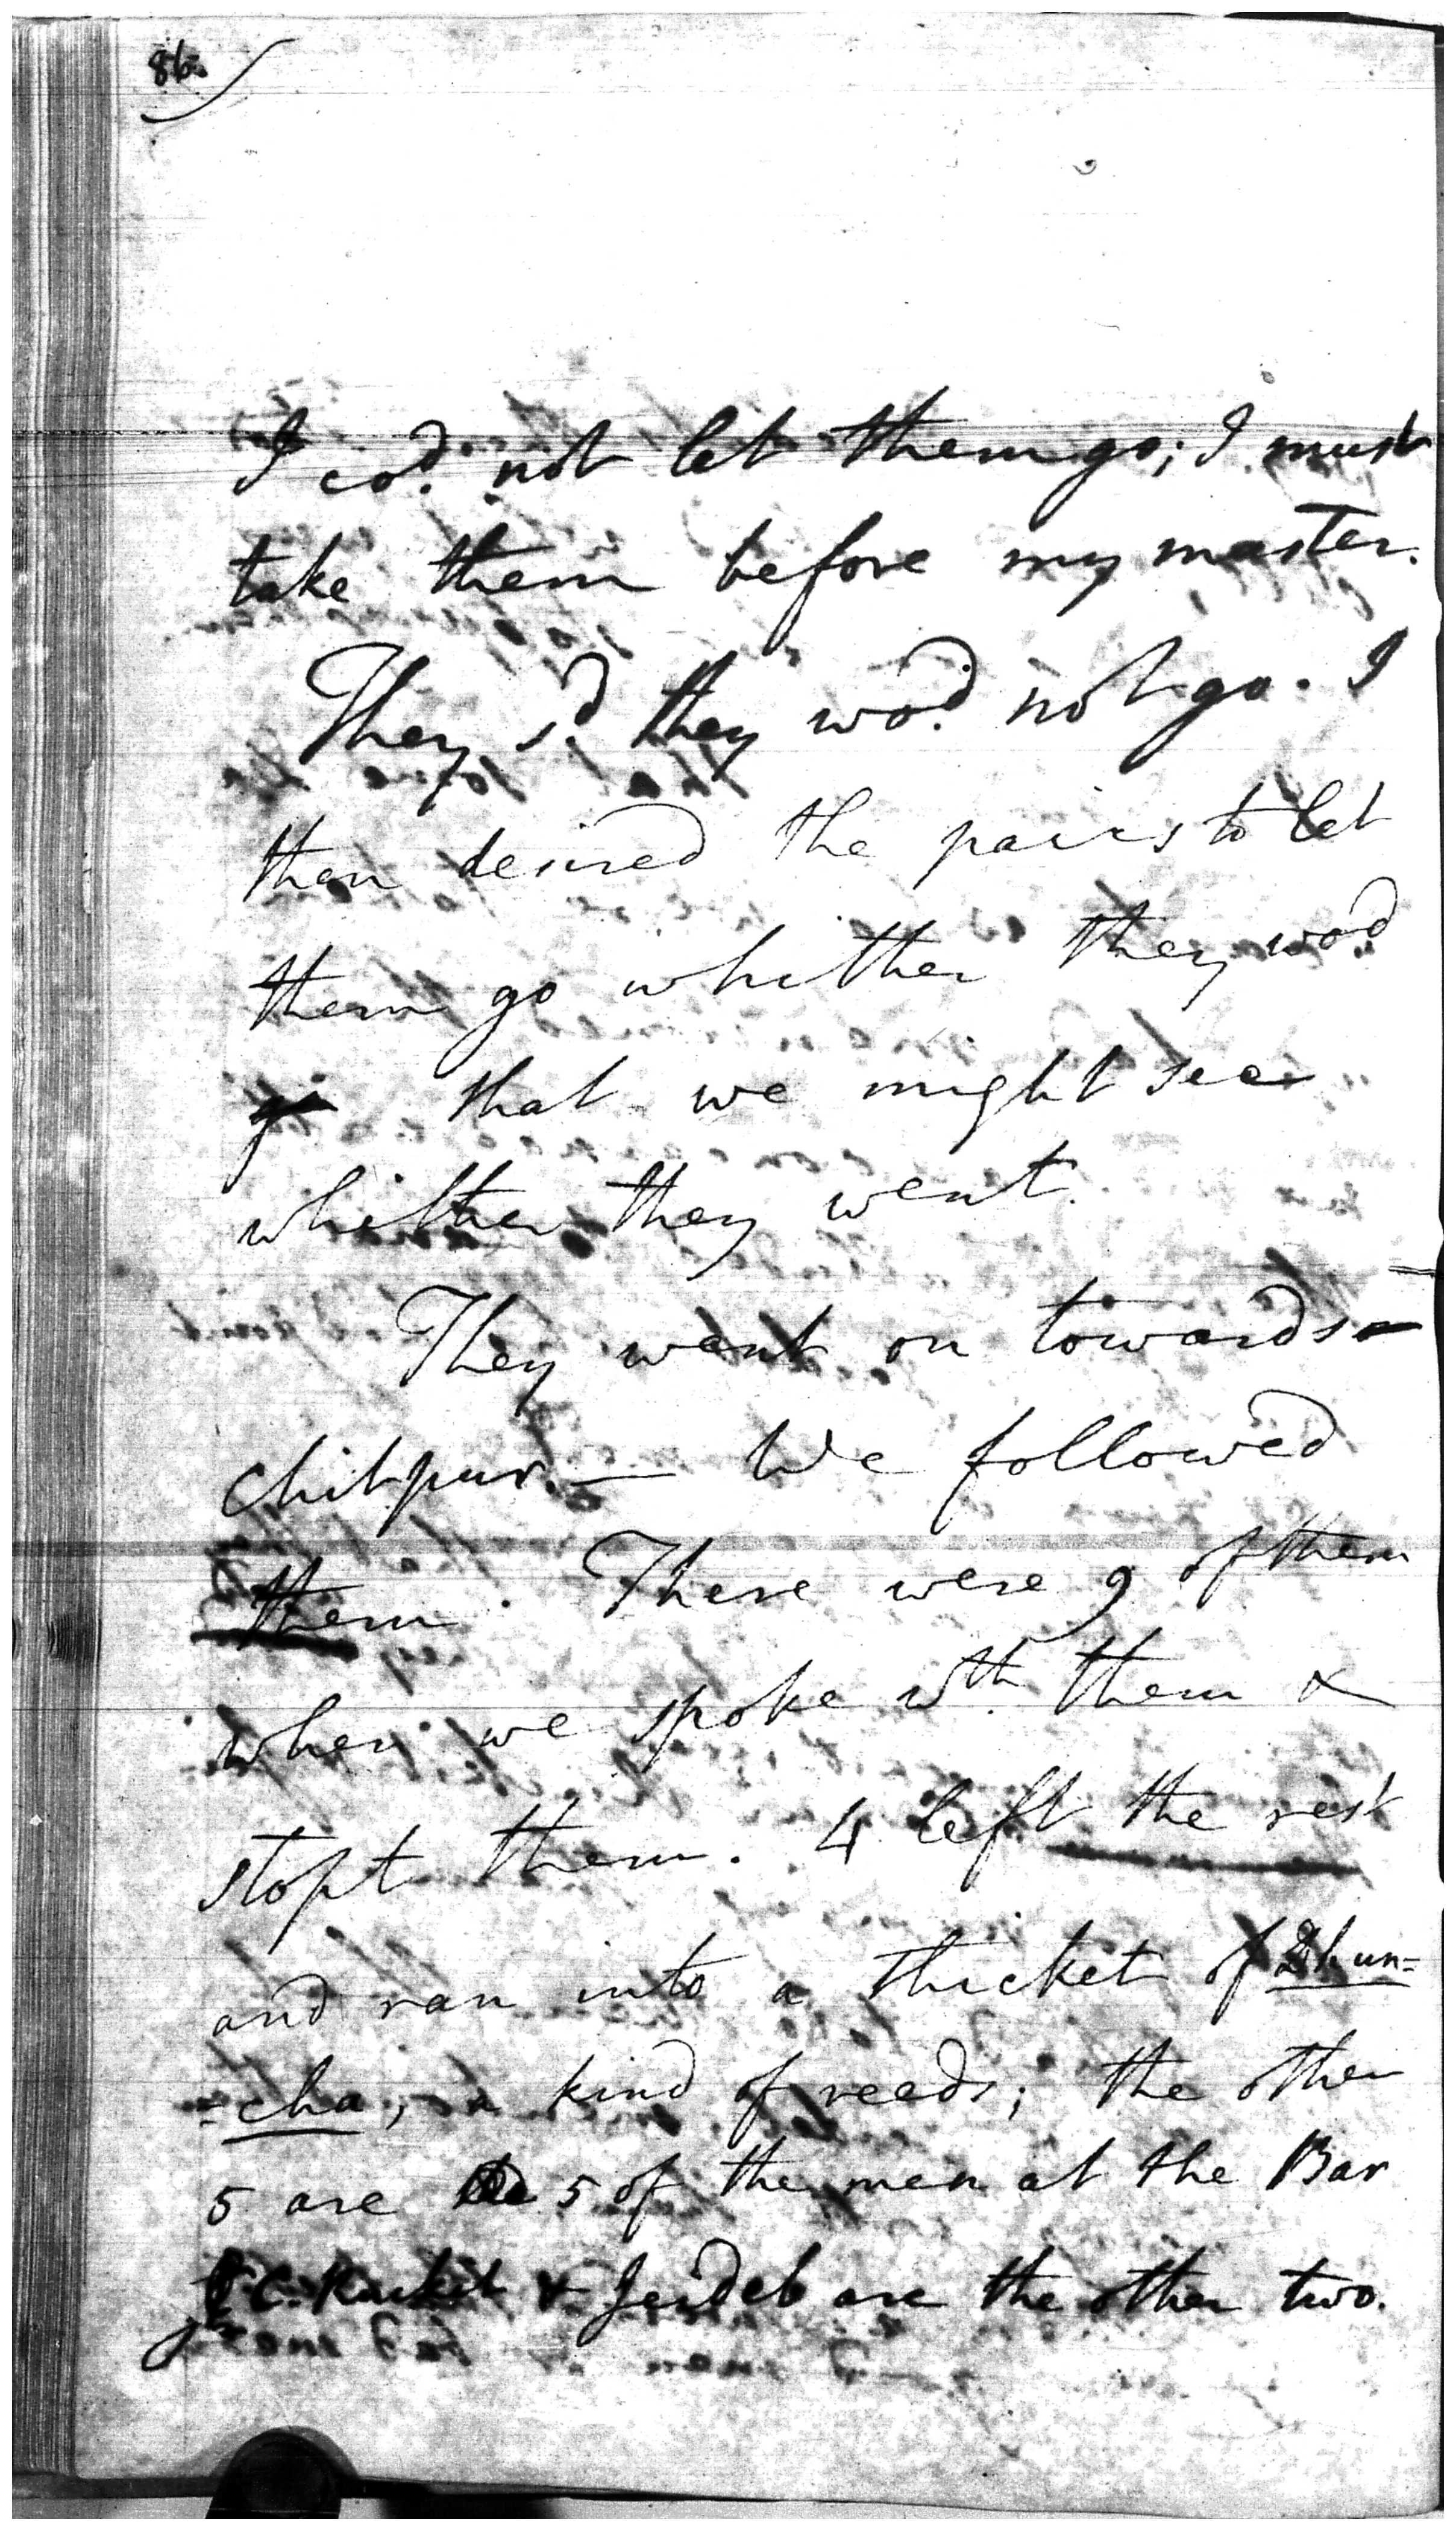 86.
I cod. not let them go; I must
take them before my master.
They sd. they wod. not go. I
then desired the pairs to let
them go whither they wod.
that we might see
whither they went.
They went on towards
Chitpur. — We followed
them. There were 9 of them
when we spoke wth. them &
stopt them. 4 left the rest
and ran into a thicket of Dhun=
=cha, a kind of reeds; the other
5 are 5 of the men at the Bar
& Jeideb are the other two.